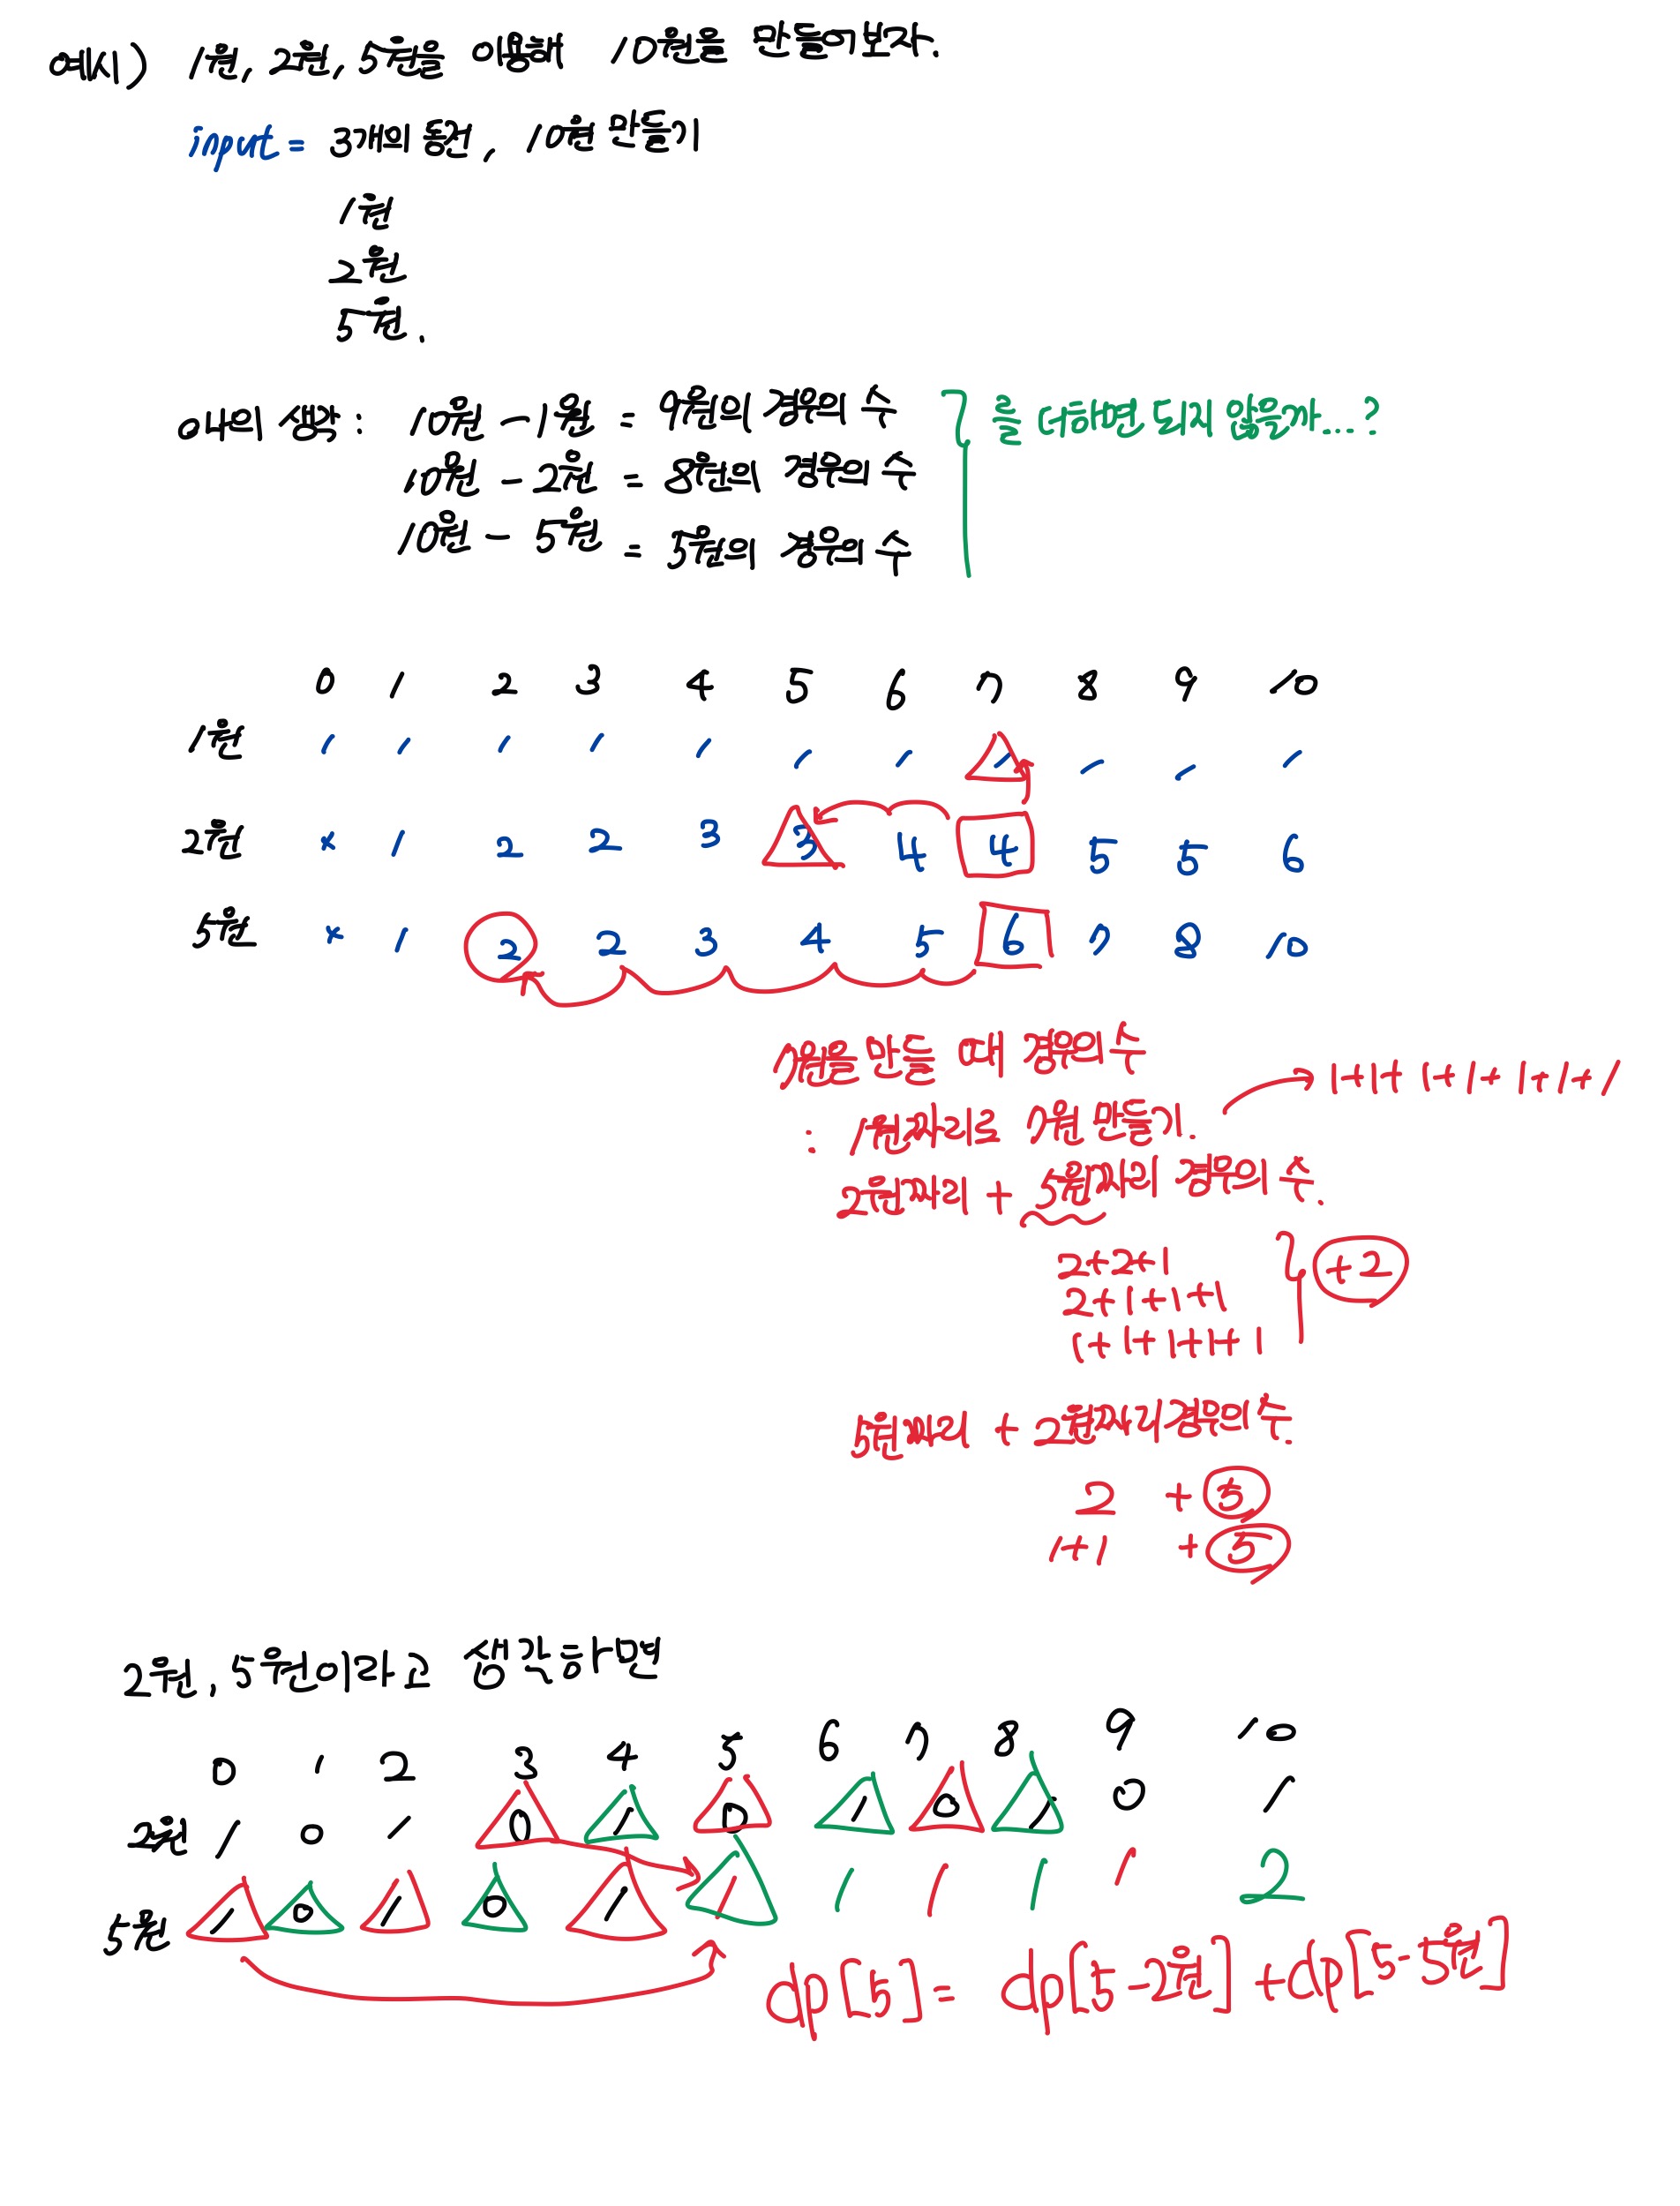 예시) 1원, 2원, 5원을 이용해 10원을 만들어보자.
input = 3개의 동전, 10원 만들기
1원
2원
5원.
나의 생각: 10원 - 1원 = 9원의 경우의 수
10원 - 2원 = 8원의 경우의 수
10원 - 5원 = 5원의 경우의 수
를 더하면 되지 않을까...?
0 1 2 3 4 5 6 7 8 9 10
1원 1 1 1 1 1 1 1 1 1 1 1
2원 x 1 2 2 3 3 4 4 5 5 6
5원 x 1 2 2 3 4 5 6 7 8 10
7원을 만들 때 경우의 수
: 1원짜리로 7원 만들기. → 1+1+1+1+1+1+1
2원짜리 + 5원짜리 경우의 수.
2+2+1
2+1+1+1
1+1+1+1+1
+2
5원짜리 + 2원짜리 경우의 수.
2 + 5
1+1 + 5
2원, 5원이라고 생각하면
0 1 2 3 4 5 6 7 8 9 10
2원 1 0 1 0 1 0 1 0 1 0 1
5원 1 0 1 0 1 1 1 1 1 1 2
dp[5] = dp[5-2원] + dp[5-5원]